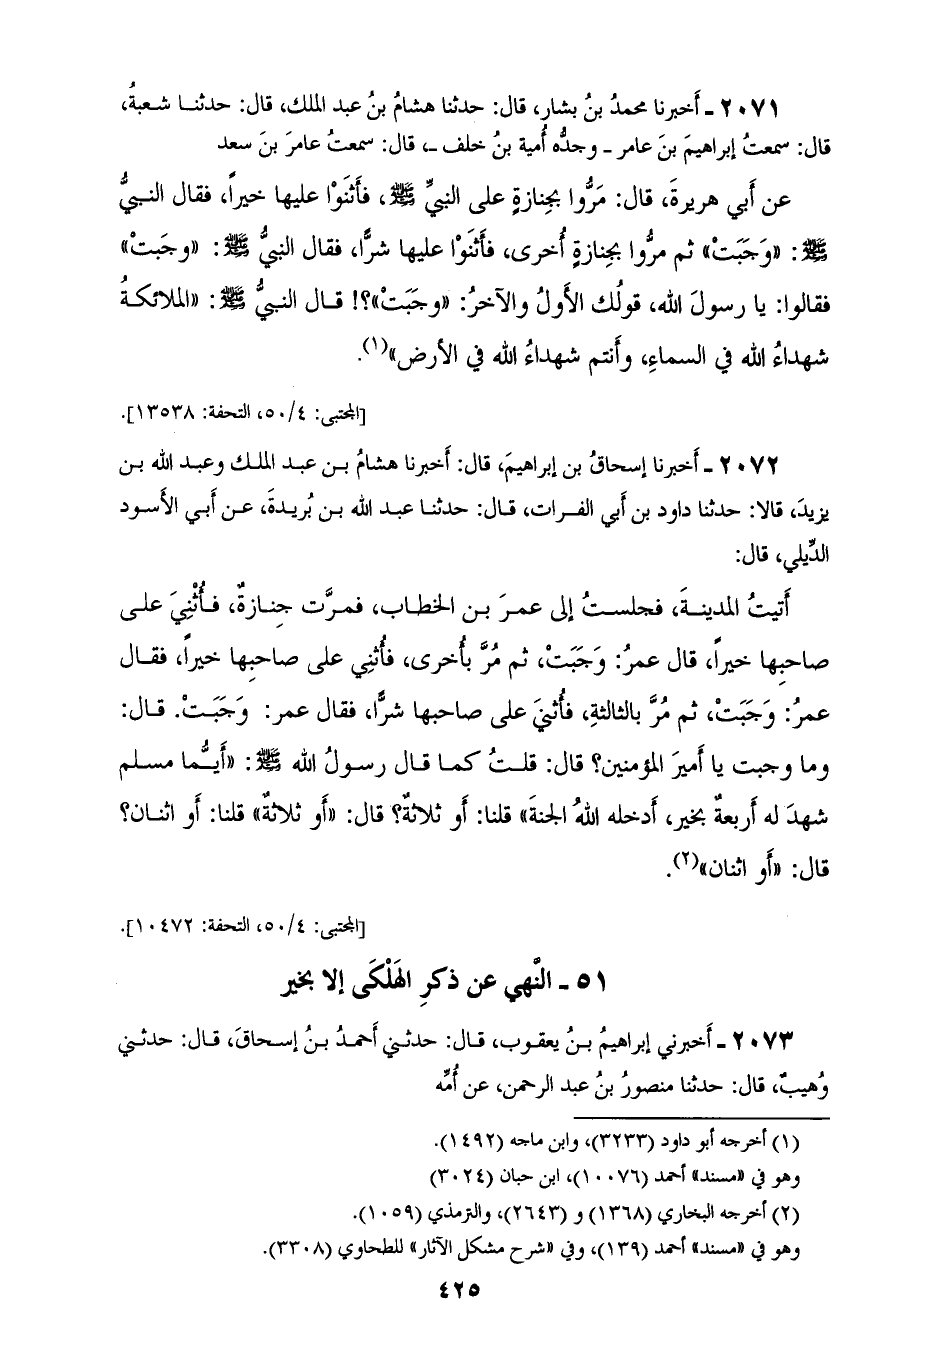 ٢٠٧١ ـ أخبرنا محمدُ بنُ بشار، قال: حدثنا هشامُ بنُ عبد الملك، قال: حدثنا شعبةُ،
قال: سمعتُ إبراهيمَ بنَ عامر ـ وجدُّه أُمية بنُ خلف ـ، قال: سمعتُ عامرَ بنَ سعد
عن أبي هريرةَ، قال: مَرُّوا بجِنازةٍ على النبيِّ ﷺ، فأَثنَوْا عليها خيراً، فقال النبيُّ
ﷺ: «وَجَبَتْ» ثم مرُّوا بجِنازةٍ أُخرى، فأَثنَوْا عليها شرًّا، فقال النبيُّ ﷺ: «وجبَتْ»
فقالوا: يا رسولَ الله، قولُك الأولُ والآخرُ: «وجَبَتْ»؟! قال النبيُّ ﷺ: «الملائكةُ
شهداءُ الله في السماءِ، وأَنتم شهداءُ الله في الأرض»(١).
[المجتبى: ٥٠/٤، التحفة: ١٣٥٣٨].
٢٠٧٢ ـ أخبرنا إسحاقُ بن إبراهيمَ، قال: أَخبرنا هشامُ بن عبد الملك وعبد الله بن
يزيدَ، قالا: حدثنا داود بن أبي الفرات، قال: حدثنا عبد الله بن بُريدةَ، عن أبي الأسود
الدِّيلي، قال:
أَتيتُ المدينةَ، فجلستُ إلى عمرَ بن الخطاب، فمرَّت جنازةٌ، فأُثْنِيَ على
صاحبِها خيراً، قال عمرُ: وَجَبَتْ، ثم مُرَّ بأُخرى، فأُثني على صاحبِها خيراً، فقال
عمرُ: وَجَبَتْ، ثم مُرَّ بالثالثةِ، فأُثنيَ على صاحبها شرًّا، فقال عمر: وَجَبَتْ. قال:
وما وجبت يا أَميرَ المؤمنين؟ قال: قلتُ كما قال رسولُ الله ﷺ: «أَيُّما مسلم
شهدَ له أربعةٌ بخير، أَدخله اللهُ الجنةَ» قلنا: أو ثلاثةٌ؟ قال: «أَو ثلاثةٌ» قلنا: أو اثنان؟
قال: «أَو اثنان»(٢).
[المجتبى: ٥٠/٤، التحفة: ١٠٤٧٢].
٥١ ـ النَّهي عن ذكرِ الهَلْكَى إلا بخير
٢٠٧٣ ـ أَخبرني إبراهيمُ بنُ يعقوب، قال: حدثني أحمدُ بنُ إسحاقَ، قال: حدثني
وُهيبٌ، قال: حدثنا منصورُ بنُ عبد الرحمن، عن أُمِّه
(١) أخرجه أبو داود (٣٢٣٣)، وابن ماجه (١٤٩٢).
وهو في «مسند» أحمد (١٠٠٧٦)، ابن حبان (٣٠٢٤)
(٢) أخرجه البخاري (١٣٦٨) و (٢٦٤٣)، والترمذي (١٠٥٩).
وهو في «مسند» أحمد (١٣٩)، وفي «شرح مشكل الآثار» للطحاوي (٣٣٠٨).
٤٢٥